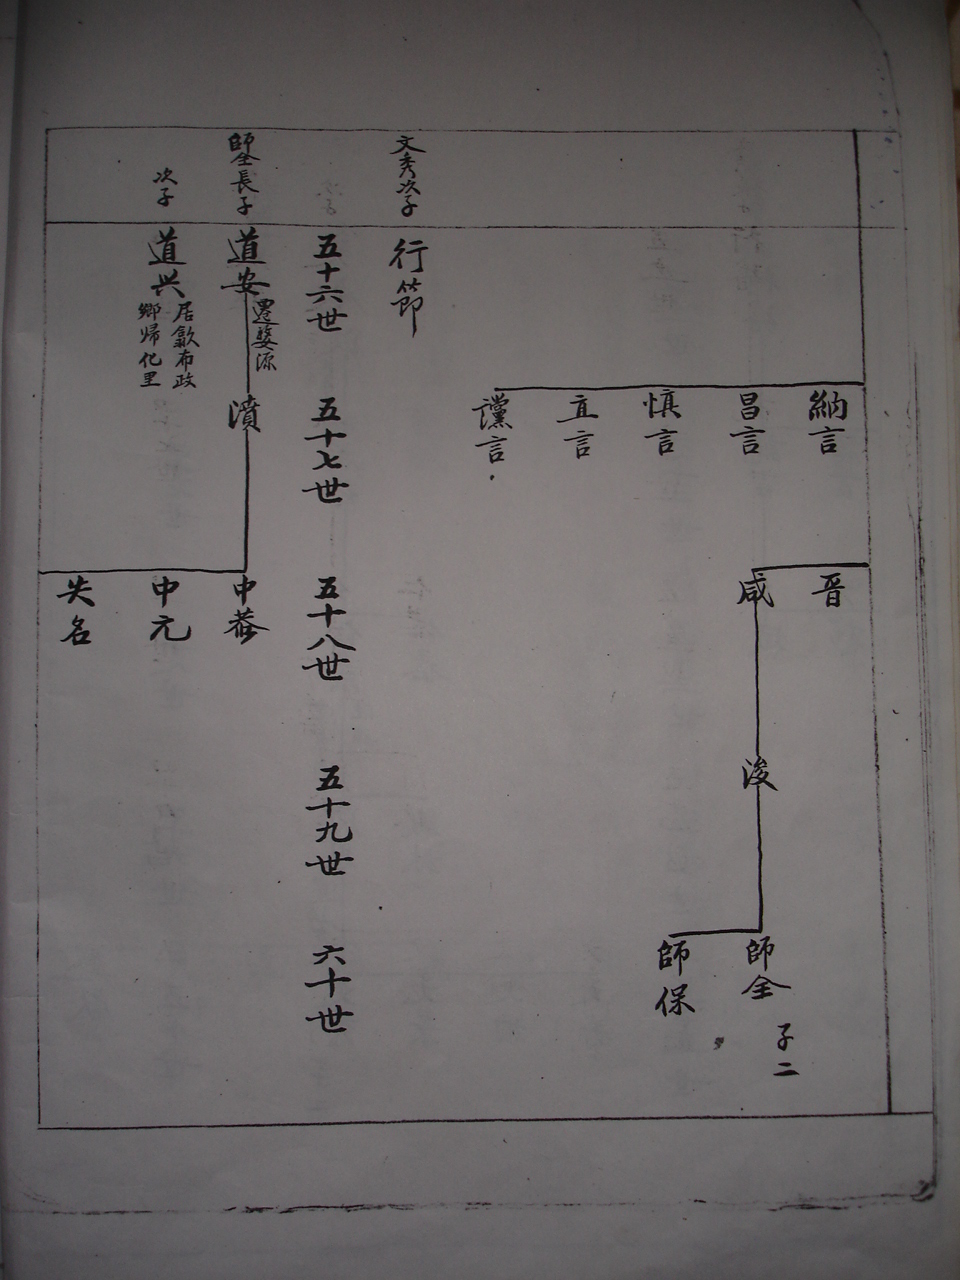 納言
昌言
慎言
直言
讜言
晋
咸
浚
師全
子二
師保
文秀次子
行節
五十六世
五十七世
五十八世
五十九世
六十世
師全長子
道安
遷婺源
濆
中
中元
失名
次子
道兴
居歙布政
鄉歸化里